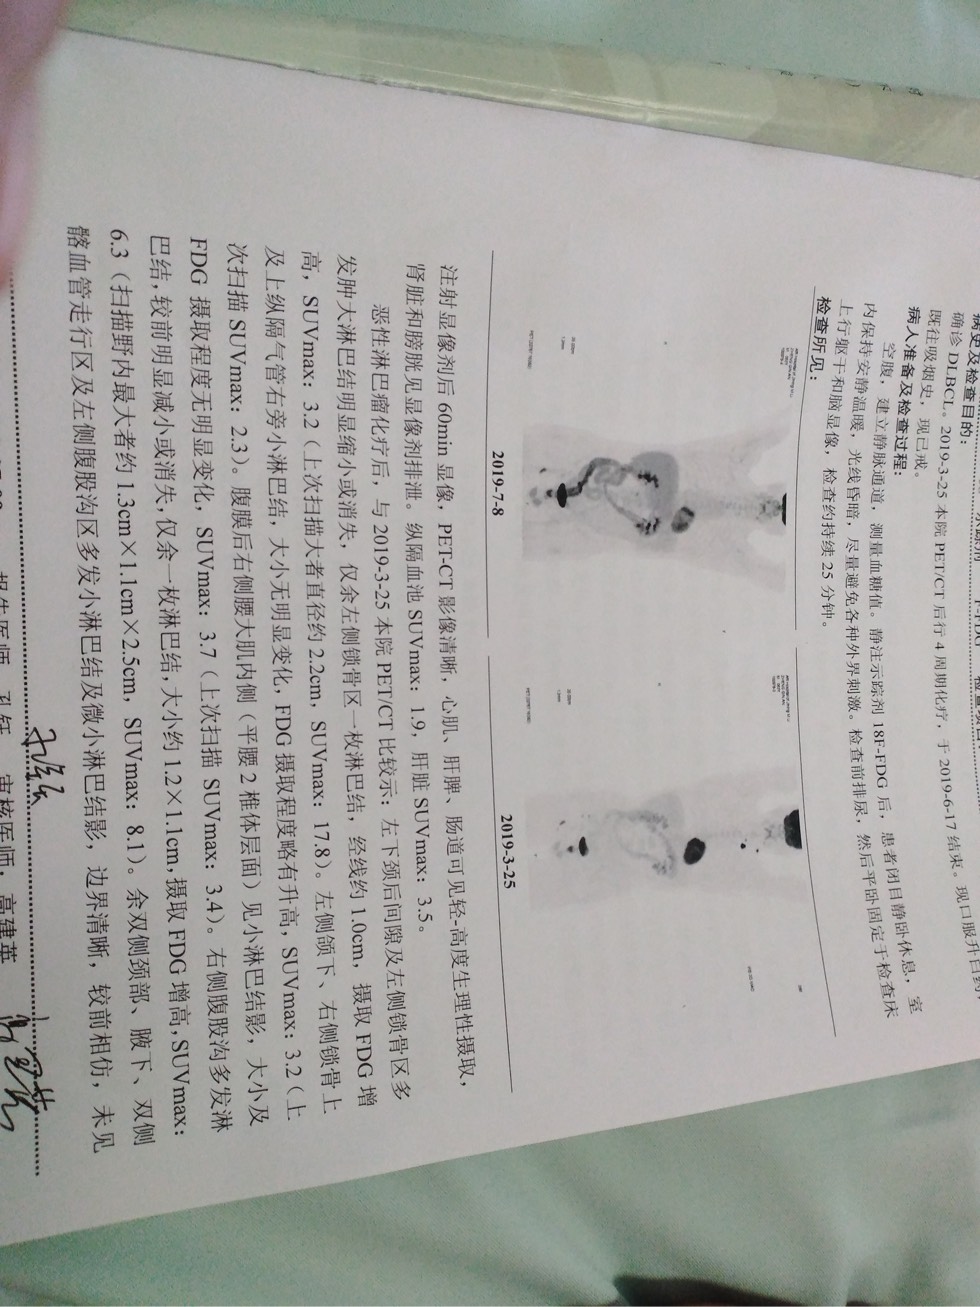 病史及检查目的：
确诊 DLBCL。2019-3-25 本院 PET/CT 后行 4 周期化疗，于 2019-6-17 结束。现口服升白药
既往吸烟史，现已戒。
病人准备及检查过程：
空腹，建立静脉通道，测量血糖值。静注示踪剂 18F-FDG 后，患者闭目静卧休息，室
内保持安静温暖，光线昏暗，尽量避免各种外界刺激。检查前排尿，然后平卧固定于检查床
上行躯干和脑显像，检查约持续 25 分钟。
检查所见：
2019-7-8 2019-3-25
注射显像剂后 60min 显像，PET-CT 影像清晰，心肌、肝脾、肠道可见轻-高度生理性摄取，
肾脏和膀胱见显像剂排泄。纵隔血池 SUVmax：1.9，肝脏 SUVmax：3.5。
恶性淋巴瘤化疗后，与 2019-3-25 本院 PET/CT 比较示：左下颈后间隙及左侧锁骨区多
发肿大淋巴结明显缩小或消失，仅余左侧锁骨区一枚淋巴结，经线约 1.0cm，摄取 FDG 增
高，SUVmax：3.2（上次扫描大者直径约 2.2cm，SUVmax：17.8）。左侧颌下、右侧锁骨上
及上纵隔气管右旁小淋巴结，大小无明显变化，FDG 摄取程度略有升高，SUVmax：3.2（上
次扫描 SUVmax：2.3）。腹膜后右侧腰大肌内侧（平腰 2 椎体层面）见小淋巴结影，大小及
FDG 摄取程度无明显变化，SUVmax：3.7（上次扫描 SUVmax：3.4）。右侧腹股沟多发淋
巴结，较前明显减小或消失，仅余一枚淋巴结，大小约 1.2×1.1cm，摄取 FDG 增高，SUVmax：
6.3（扫描野内最大者约 1.3cm×1.1cm×2.5cm，SUVmax：8.1）。余双侧颈部、腋下、双侧
髂血管走行区及左侧腹股沟区多发小淋巴结及微小淋巴结影，边界清晰，较前相仿，未见
报告医师 审核医师：高建英